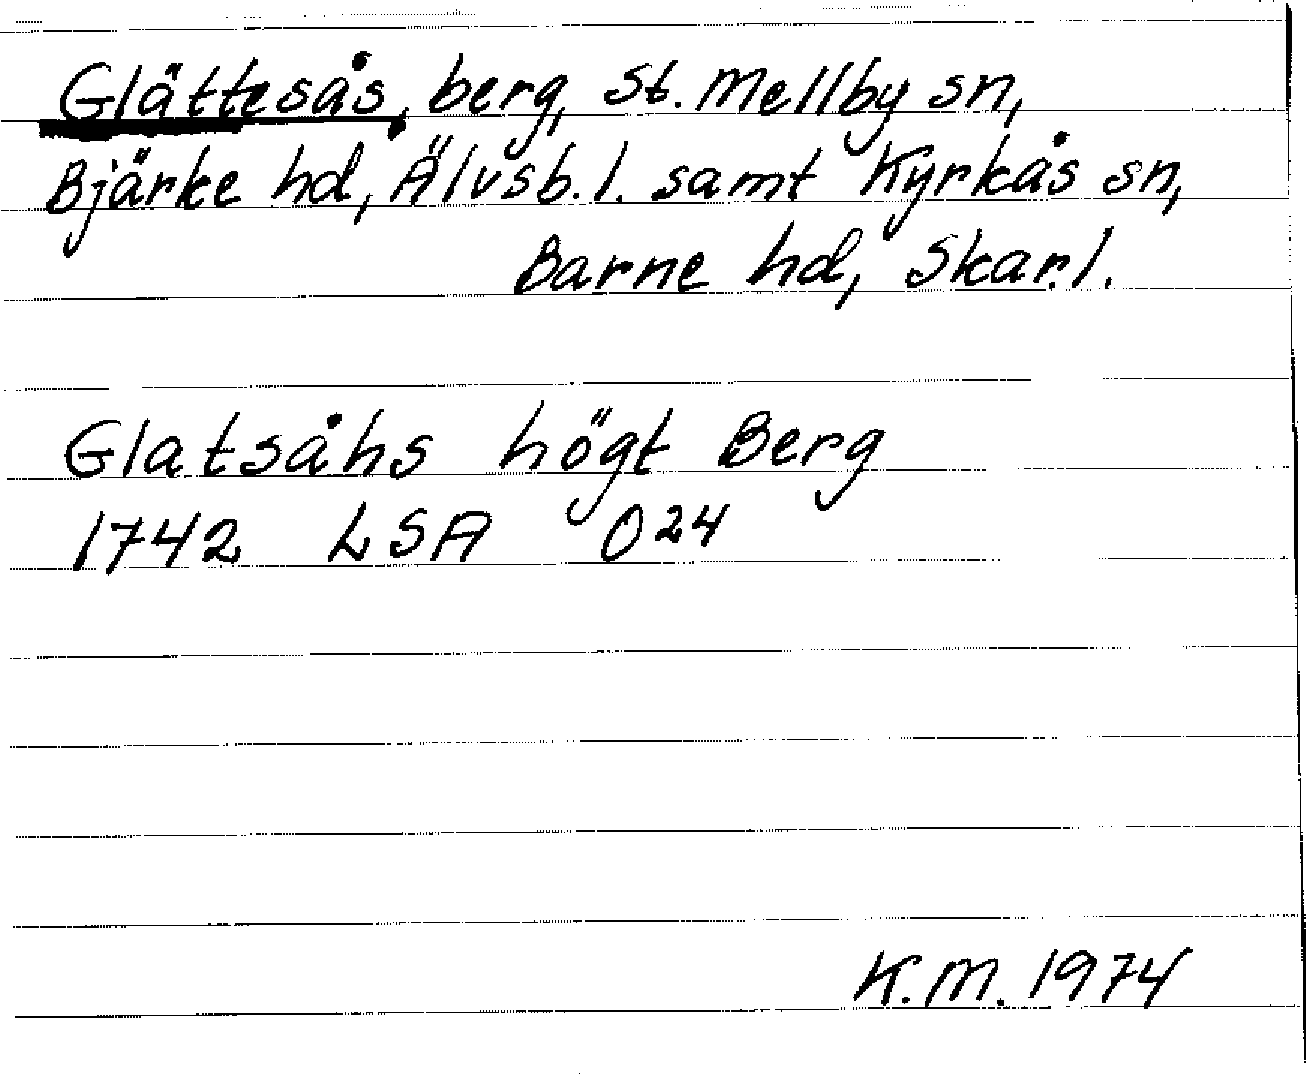 Glättesås, berg, St. Mellby sn,
Bjärke hd, Älvsb. l. samt Kyrkås sn,
Barne hd, Skar. l.
Glatsåhs högt Berg
1742 LSA O24
K.M. 1974